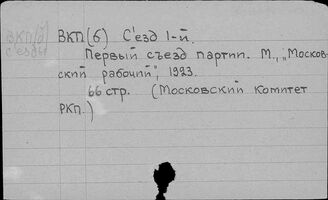 ВКП(б) С'езд 1-й.
вкп(б)
с'езды
Первый съезд партии. М., „Москов-
ский рабочий", 1923.
66 стр. (Московский комитет
РКП.)